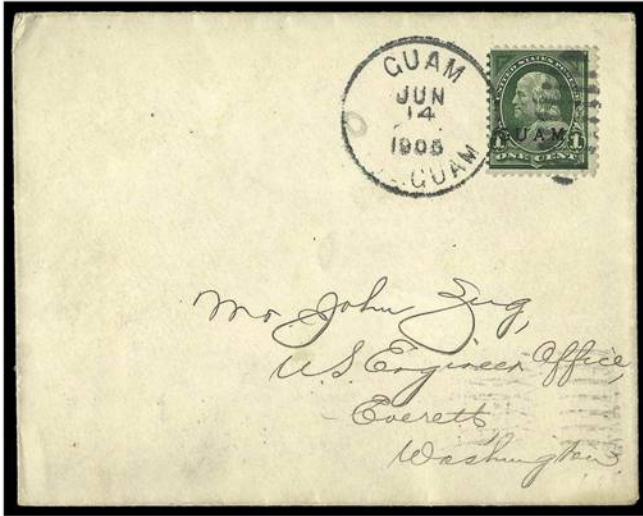 GUAM
JUN
14
1905
GUAM
UNITED STATES POSTAGE
GUAM
1 ONE CENT 1
Mr John Zug,
U.S. Engineer Office,
Everett,
Washington